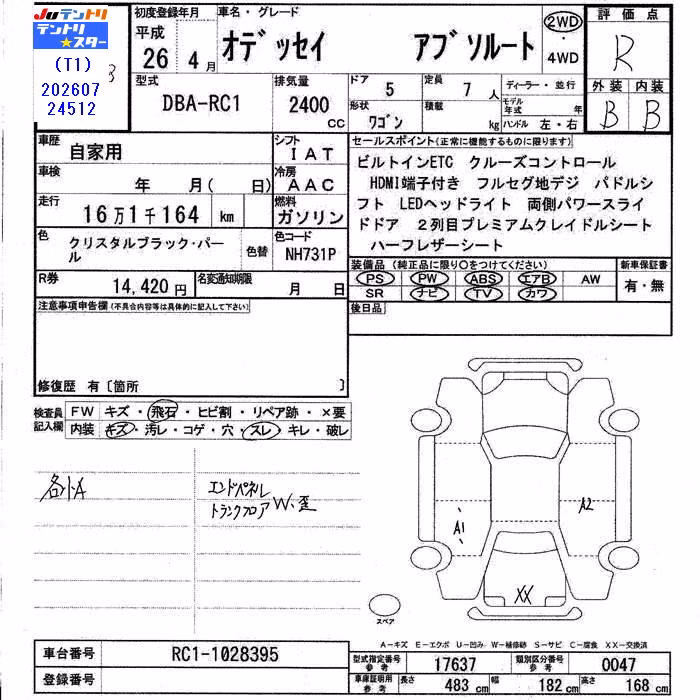 Juテントリ
テントリ★スター
(T1)
202607
24512
初度登録年月
平成
26 4月
車名・グレード
オデッセイ アブソルート
2WD
・
4WD
評価点
R
外装 内装
B B
型式
DBA-RC1
排気量
2400
cc
ドア 5
定員 7人
形状
ワゴン
積載
kg
ディーラー・並行
モデル年式 年
ハンドル 左・右
車歴
自家用
シフト
IAT
車検
年 月( 日)
冷房
AAC
走行
16万1千164 km
燃料
ガソリン
色
クリスタルブラック・パール
色替
色コード
NH731P
R券
14,420円
名変通知期限
月 日
セールスポイント(正常に機能するものに限り)
ビルトインETC クルーズコントロール
HDMI端子付き フルセグ地デジ パドルシ
フト LEDヘッドライト 両側パワースライ
ドドア 2列目プレミアムクレイドルシート
ハーフレザーシート
装備品(純正品に限り○をつけてください)
新車保証書
PS PW ABS エアB AW
SR ナビ TV カワ
有・無
後日品
注意事項申告欄(不具合内容等は具体的に記入して下さい)
修復歴 有〔箇所 〕
検査員
記入欄
FW キズ・飛石・ヒビ割・リペア跡・×要
内装 キズ・汚レ・コゲ・穴・スレ・キレ・破レ
各小A
エンドパネル
トランクフロア W、歪
A1
A2
XX
スペア
A-キズ E-エクボ U-凹み W-補修跡 S-サビ C-腐食 XX-交換済
車台番号 RC1-1028395
登録番号
型式指定番号
参考
17637
類別区分番号
参考
0047
車庫証明用
参考
長さ 483cm
幅 182cm
高さ 168cm